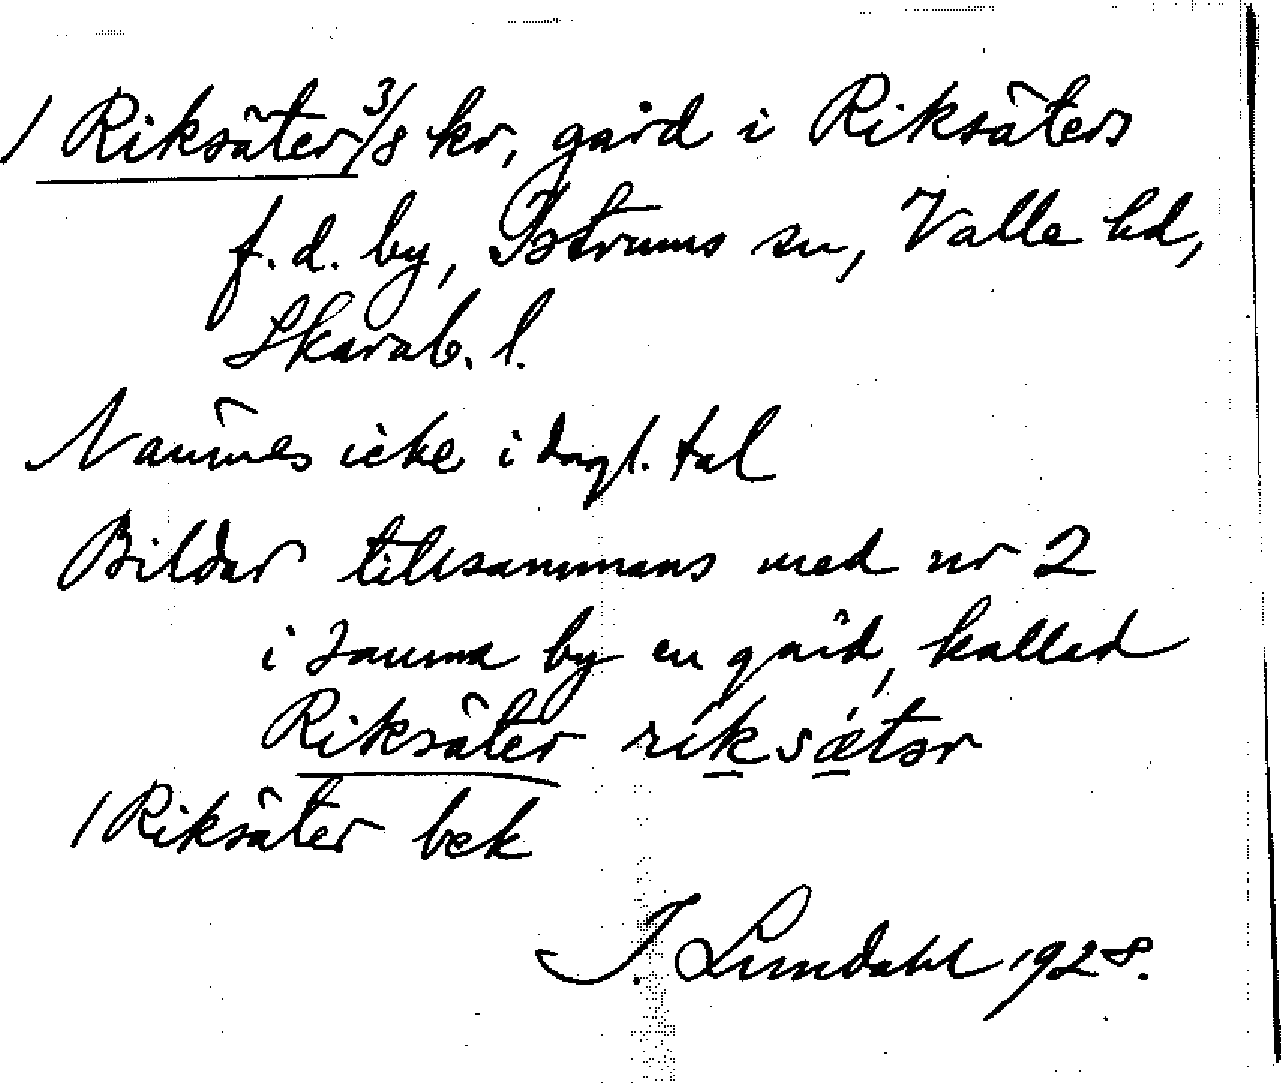 1 Riksäter 3/8 kr, gård i Riksäters
f. d. by, Istrums sn, Valle hd,
Skarab. l.
Nämnes icke i dagl. tal
Bildar tillsammans med nr 2
i samma by en gård, kallad
Riksäter ríksǽtər
1 Riksäter bek
I. Lundahl 1928.